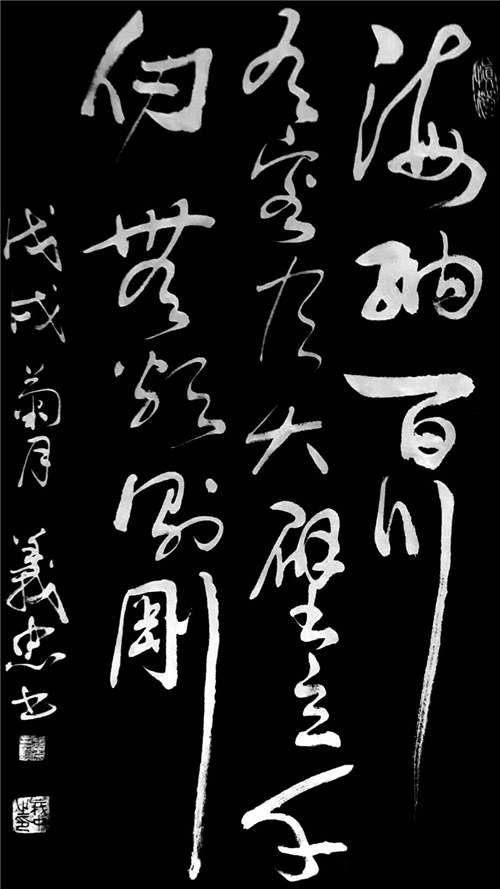 海納百川
有容乃大壁立千
仞無欲則剛
戊戌菊月義忠书